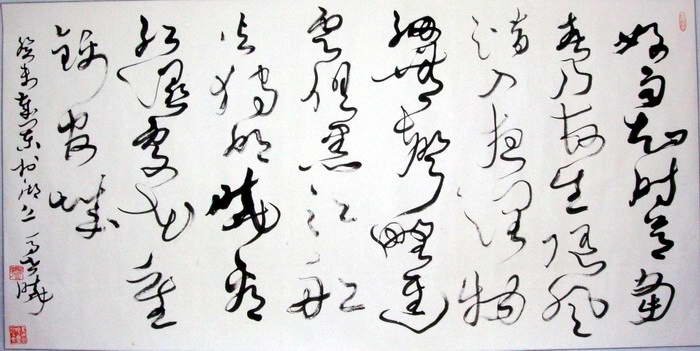 好雨知时节当
春乃发生随风
潜入夜润物
细无声野径
云俱黑江船
火独明晓看
红湿处花重
锦官城
癸未